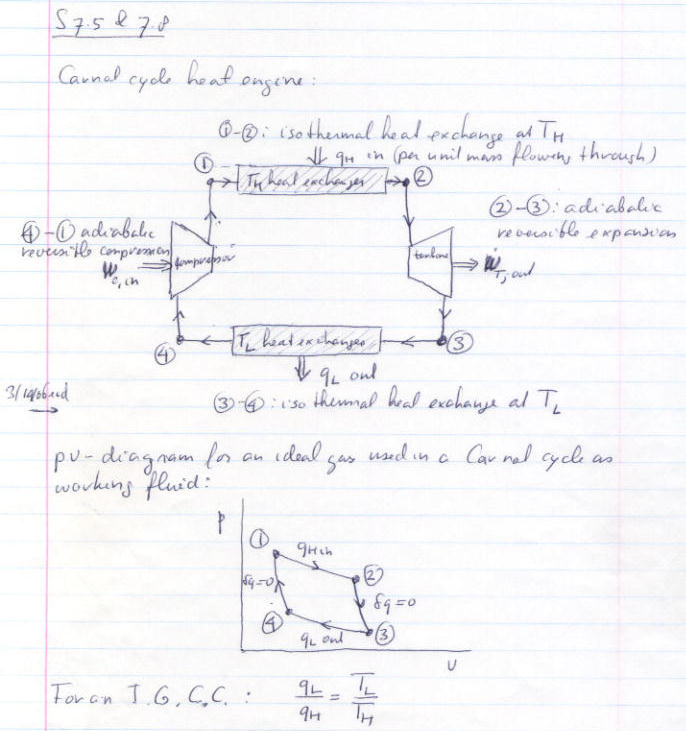 S 7.5 & 7.8
Carnot cycle heat engine:
①-②: isothermal heat exchange at T_H
q_H in (per unit mass flowing through)
① T_H heat exchanger ②
②-③: adiabatic
reversible expansion
④-① adiabatic
reversible compression
compressor
turbine
Ẇ_C,in
Ẇ_T,out
④ T_L heat exchanger ③
q_L out
③-④: isothermal heat exchange at T_L
pv-diagram for an ideal gas used in a Carnot cycle as
working fluid:
p
① q_H in
②
δq=0
δq=0
④
q_L out ③
v
For an I.G.C.C.: q_L/q_H = T_L/T_H